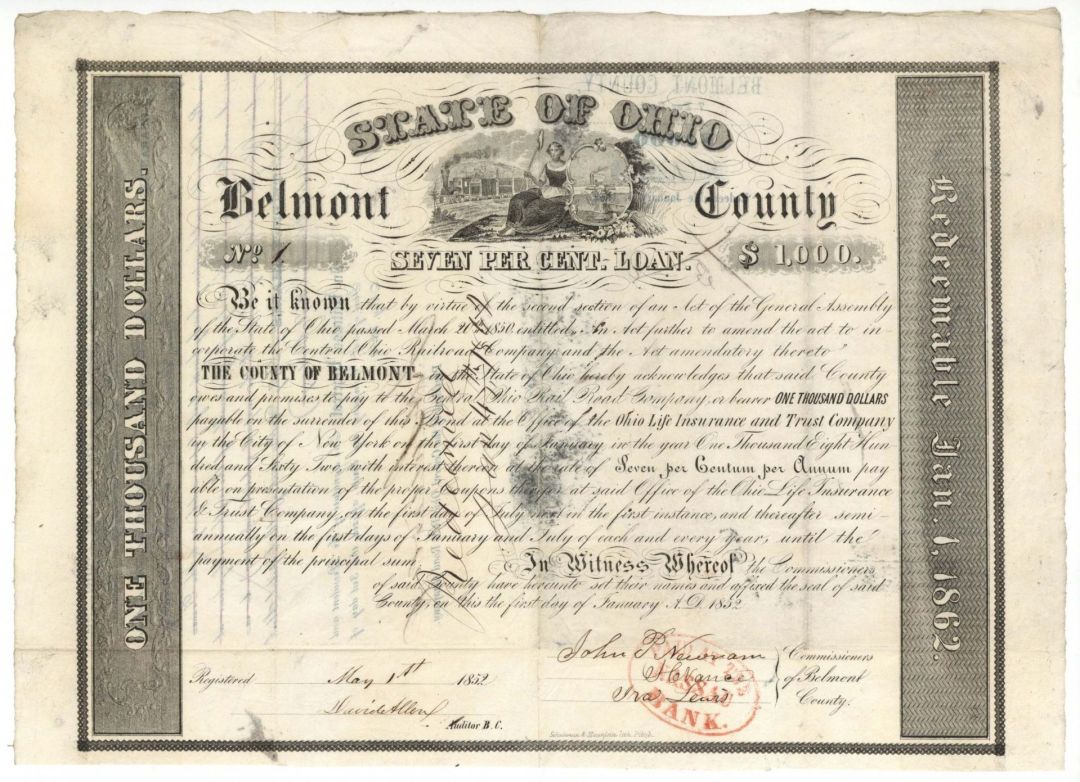 STATE OF OHIO
Belmont County
No. 1. $ 1,000.
SEVEN PER CENT. LOAN.
Be it known that by virtue of the second section of an Act of the General Assembly
of the State of Ohio passed March 20th 1850 entitled, An Act further to amend the act to in-
corporate the Central Ohio Railroad Company and the Act amendatory thereto"
THE COUNTY OF BELMONT in the State of Ohio hereby acknowledges that said County
owes and promises to pay to the Central Ohio Rail Road Company or bearer ONE THOUSAND DOLLARS
payable on the surrender of this Bond at the Office of the Ohio Life Insurance and Trust Company
in the City of New York on the first day of January in the year One Thousand Eight Hun-
dred and Sixty Two, with interest thereon at the rate of Seven per Centum per Annum pay
able on presentation of the proper Coupons thereof at said Office of the Ohio Life Insurance
& Trust Company, on the first day of July next in the first instance, and thereafter semi-
annually on the first days of January and July of each and every year, until the
payment of the principal sum.
In Witness Whereof the Commissioners
of said County have hereunto set their names and affixed the seal of said
County, on this the first day of January A.D. 1852
John P. Newnam
Ira Lewis
Commissioners
of Belmont
County.
Registered May 1th 1852
David Allen
Auditor B. C.
BANK.
ONE THOUSAND DOLLARS.
Redeemable Jan. 1, 1862.
BELMONT COUNTY